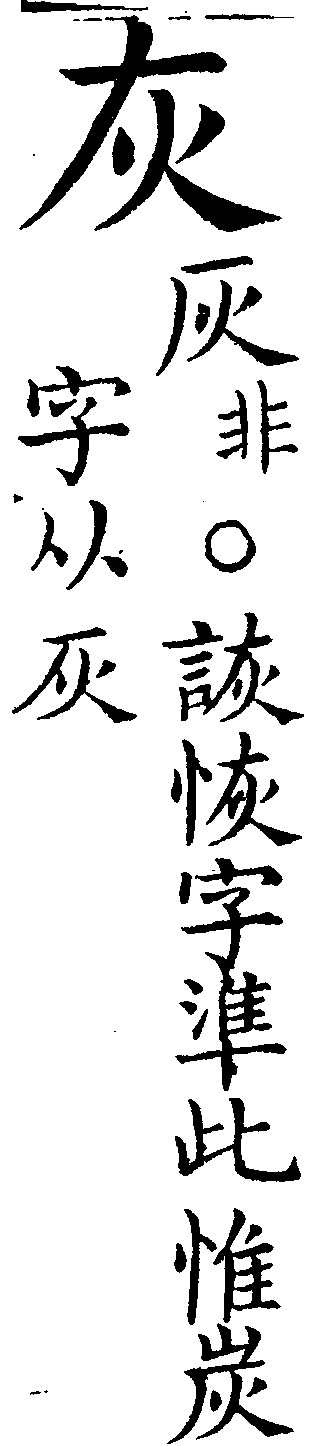 灰
灰非○詼恢字準此惟炭
字从灰